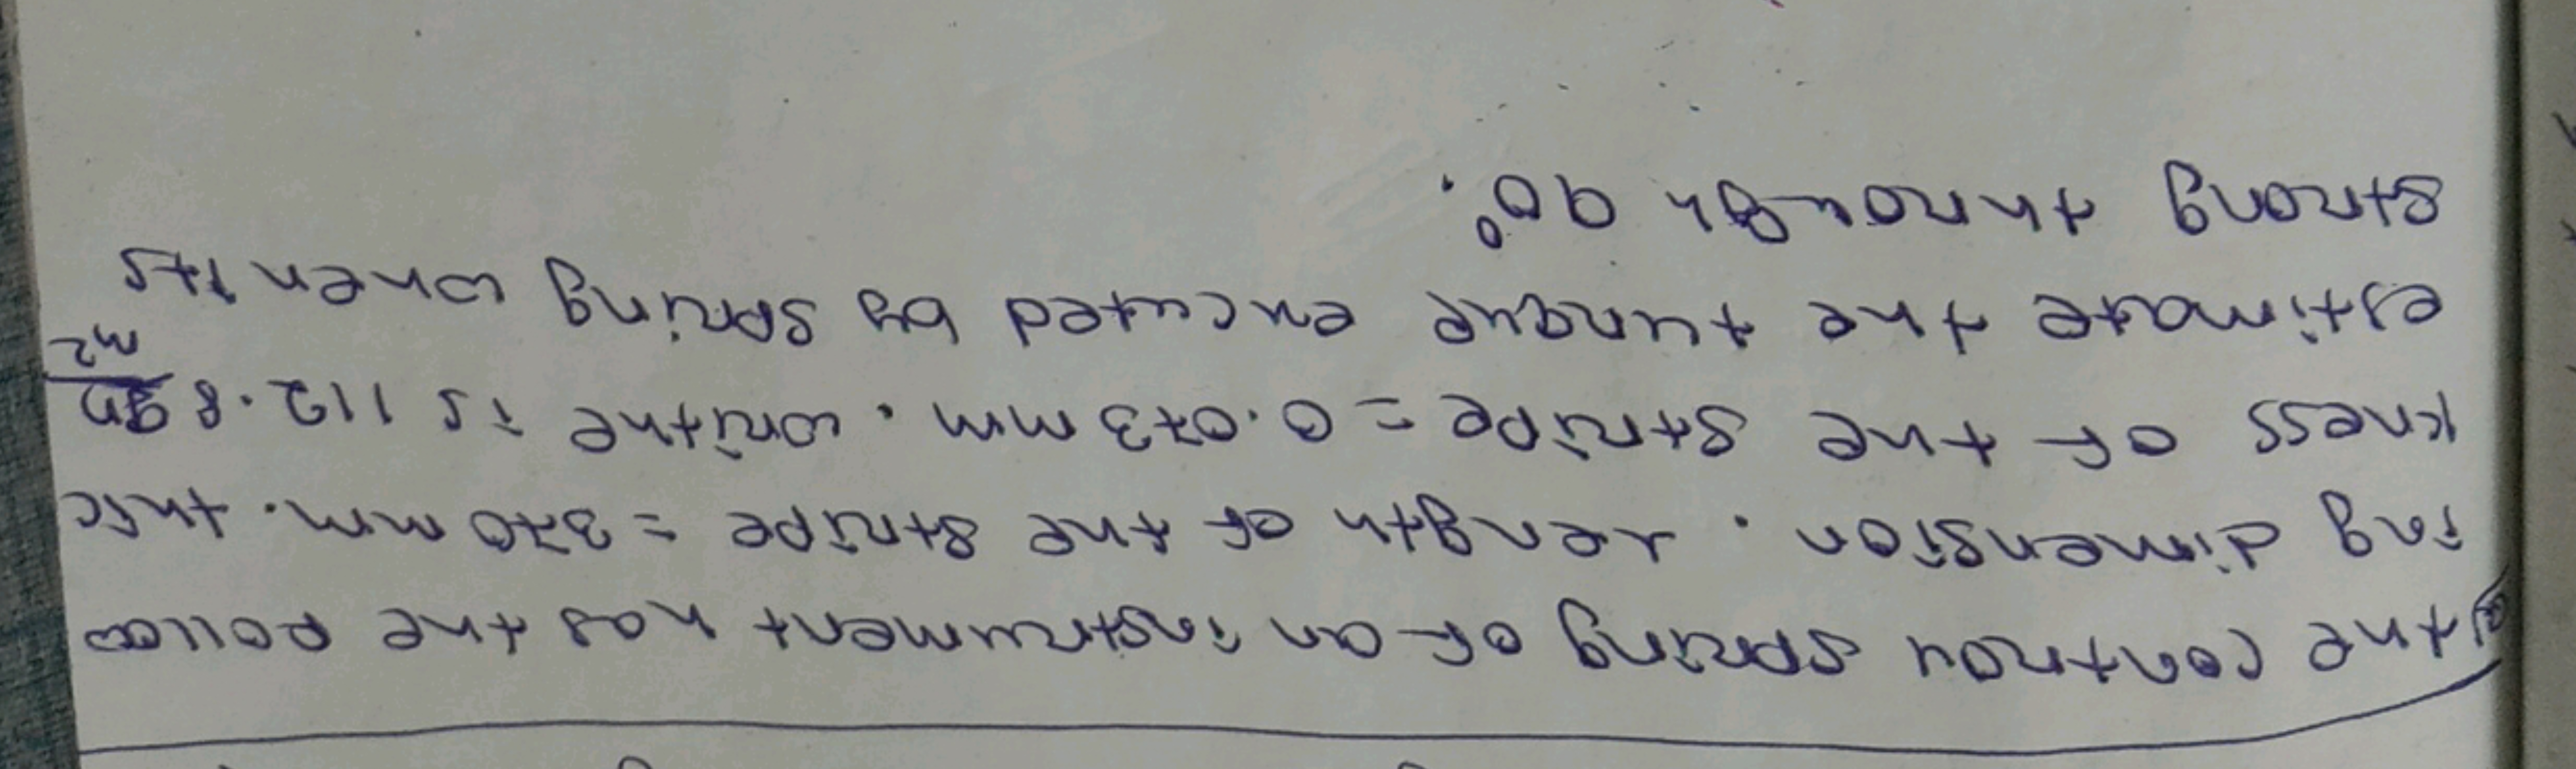 the controll spring of an instrument has the follow
ing dimension. Length of the stripe = 370 mm. thic
kness of the stripe = 0.073 mm. writhe is 112.8
m2
estimate the turque excuted by spring when its
strong through 90°.